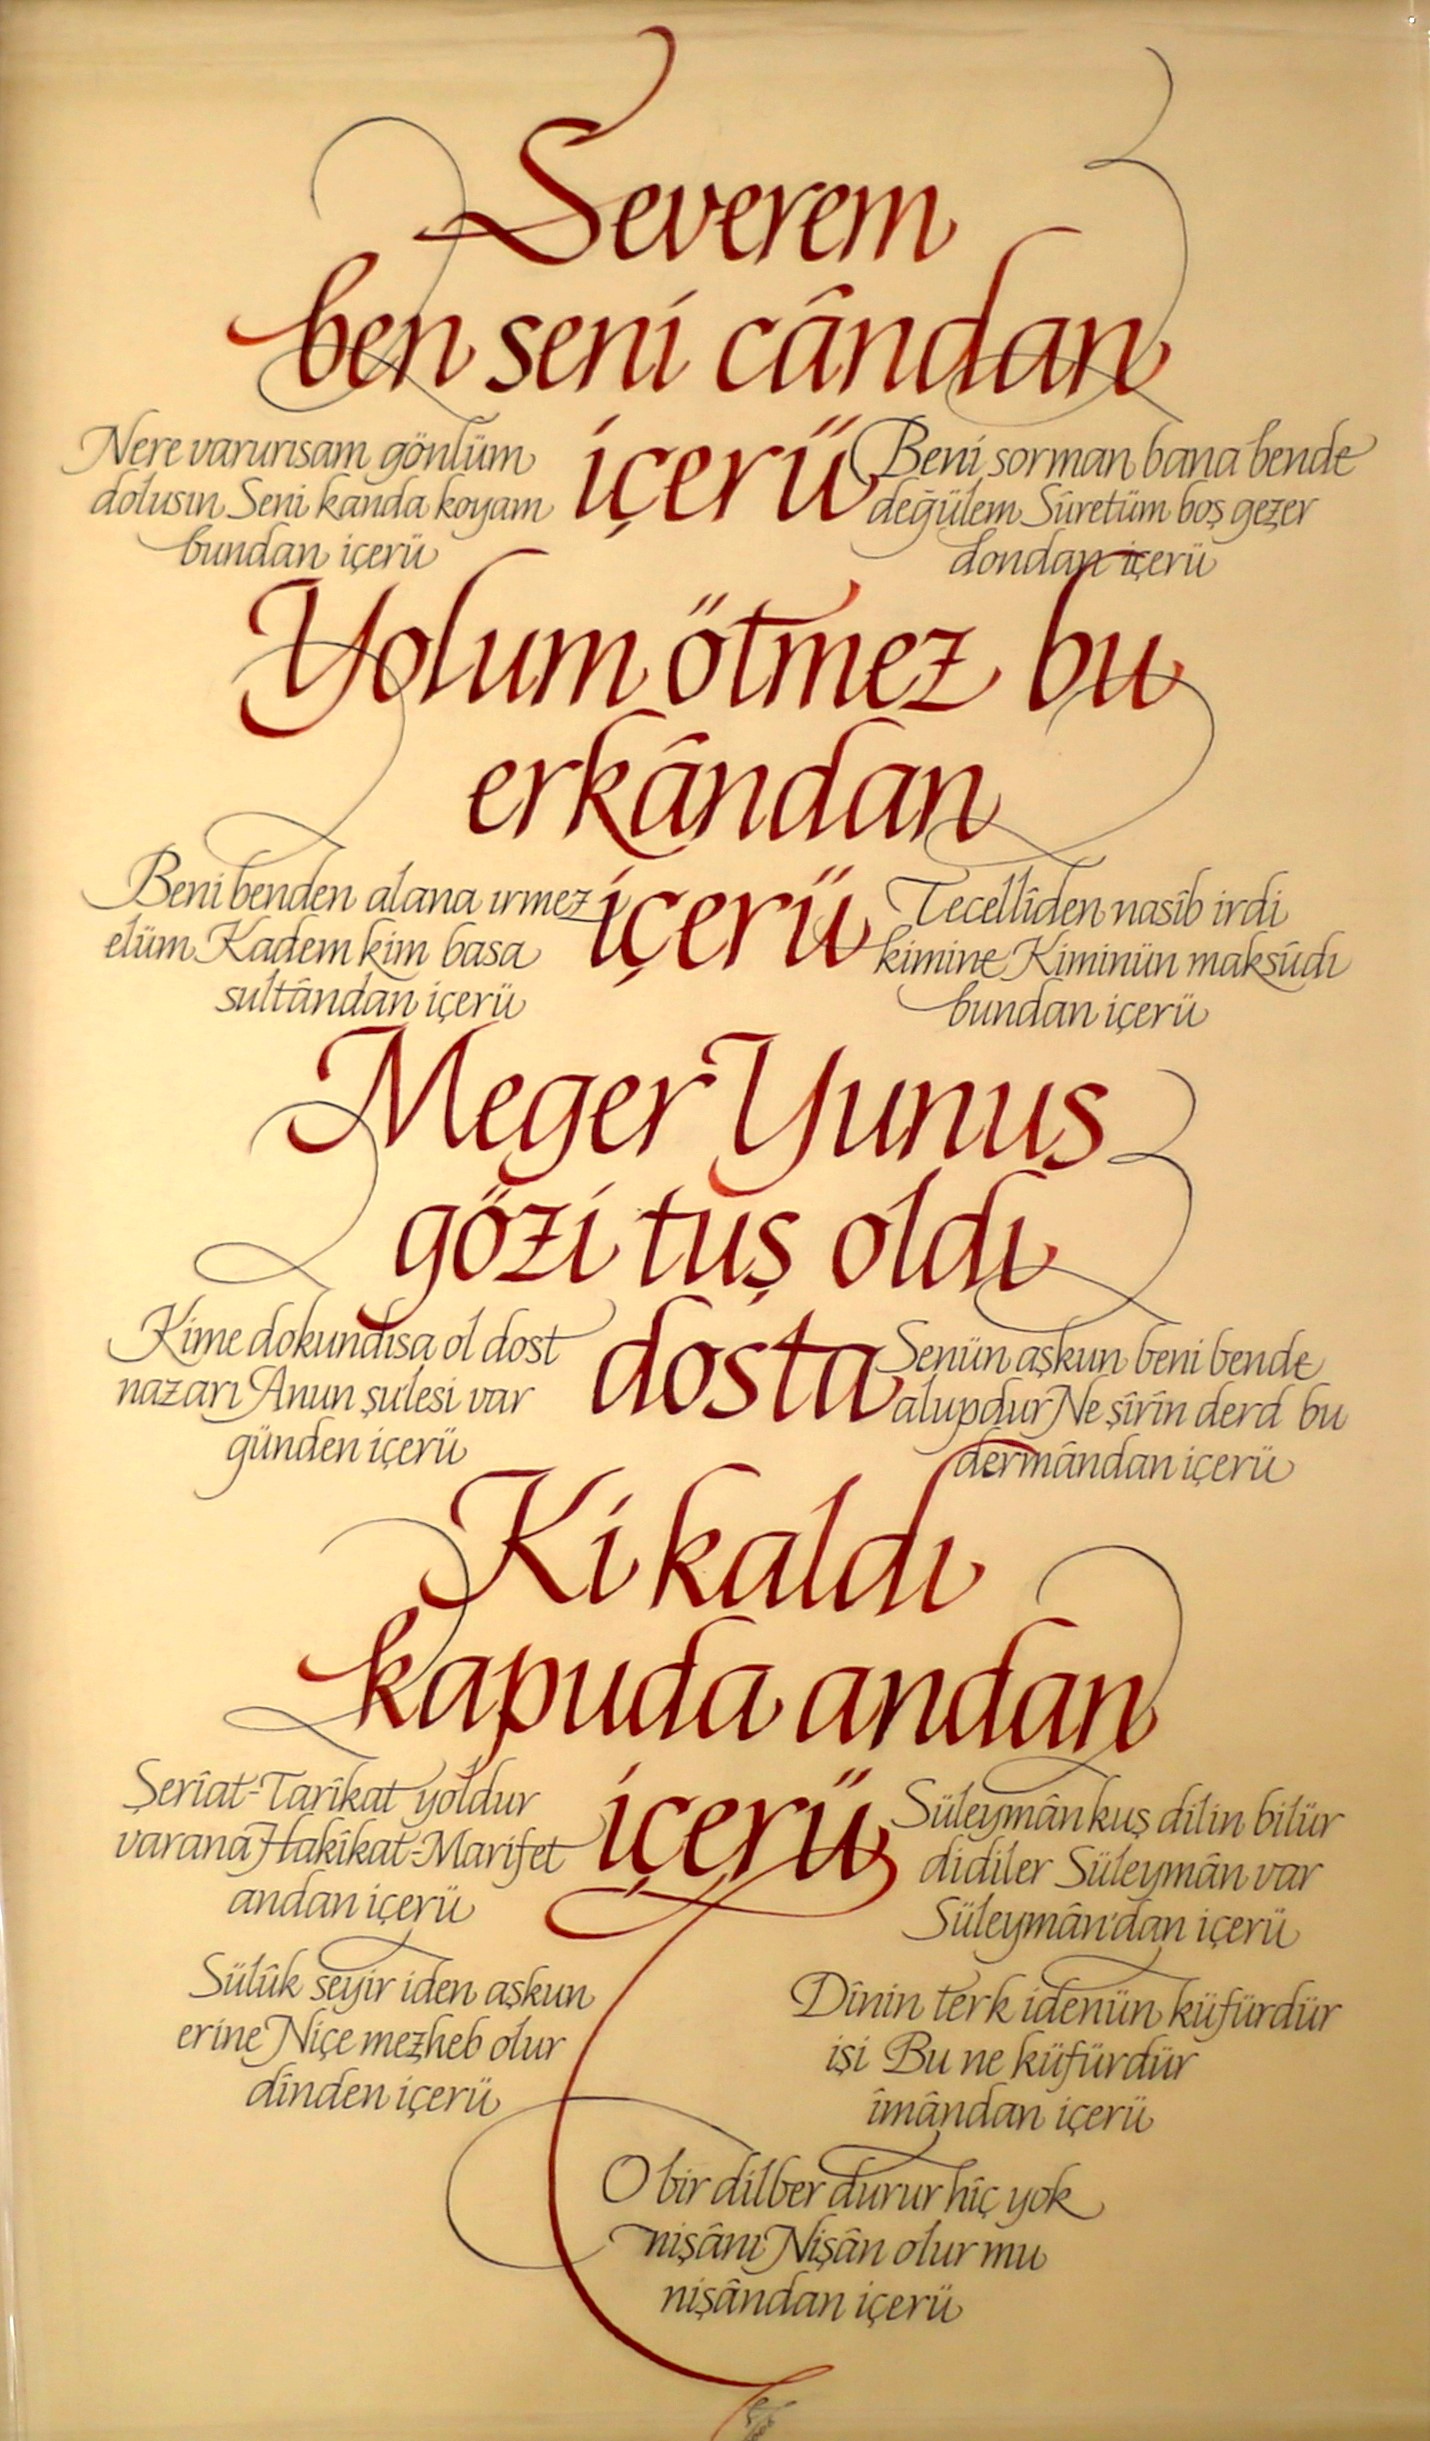 Severem
ben seni cândan
içerü
Nere varurısam gönlüm
dolusın Seni kanda koyam
bundan içerü
Beni sorman bana bende
değülem Sûretüm boş gezer
dondan içerü
Yolum ötmez bu
erkândan
içerü
Beni benden alana ırmez
elüm Kadem kim basa
sultândan içerü
Tecellîden nasîb irdi
kimine Kiminün maksûdı
bundan içerü
Meger Yunus
gözi tuş oldı
dosta
Kime dokundısa ol dost
nazarı Anun şu'lesi var
günden içerü
Senün aşkun beni bende
alupdur Ne şîrîn derd bu
dermândan içerü
Ki kaldı
kapuda andan
içerü
Şerîat-Tarîkat yoldur
varana Hakîkat-Marifet
andan içerü
Süleymân kuş dilin bilür
didiler Süleymân var
Süleymân'dan içerü
Sülûk seyir iden aşkun
erine Niçe mezheb olur
dînden içerü
Dînin terk idenün küfürdür
işi Bu ne küfürdür
îmândan içerü
O bir dilber durur hîç yok
nişânı Nişân olur mu
nişândan içerü